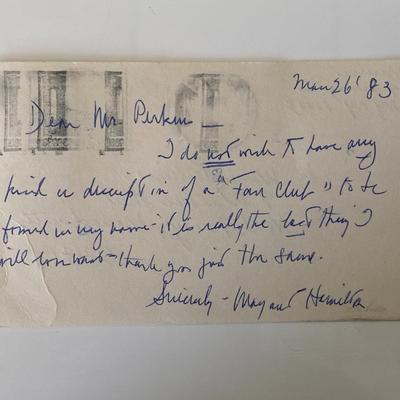 Mar 26' 83
Dear Mr. Perkins —
I do not wish to have any
kind or description of a "Fan Club" to be
formed in my name - it is really the last thing I
will ever want - thank you just the same.
Sincerely - Margaret Hamilton